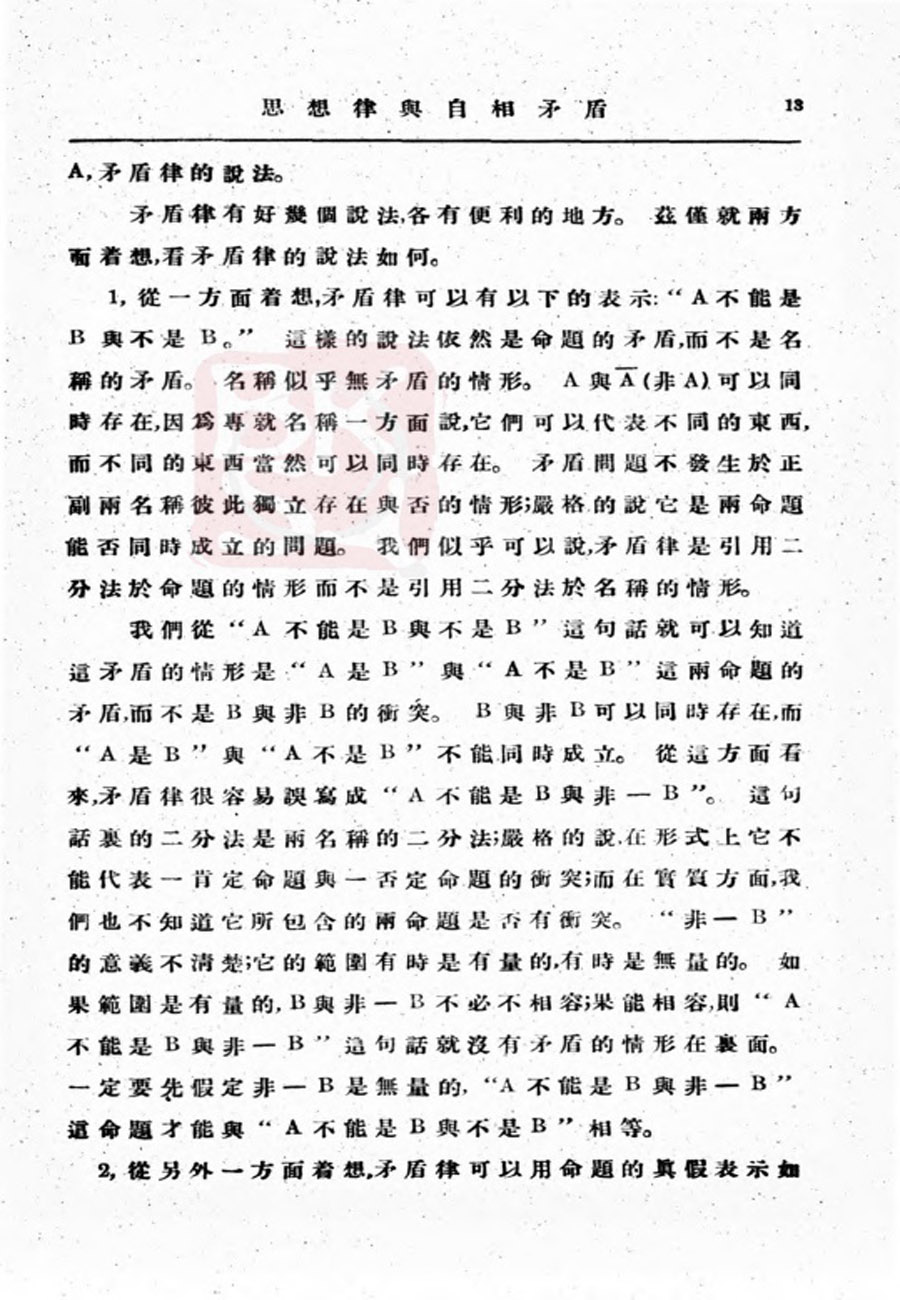 思想律與自相矛盾 13
A,矛盾律的說法。
矛盾律有好幾個說法,各有便利的地方。 茲僅就兩方
面着想,看矛盾律的說法如何。
1, 從一方面着想,矛盾律可以有以下的表示: “A不能是
B 與不是 B。” 這樣的說法依然是命題的矛盾,而不是名
稱的矛盾。 名稱似乎無矛盾的情形。 A與A̅(非A)可以同
時存在,因爲專就名稱一方面說,它們可以代表不同的東西,
而不同的東西當然可以同時存在。 矛盾問題不發生於正
副兩名稱彼此獨立存在與否的情形;嚴格的說它是兩命題
能否同時成立的問題。 我們似乎可以說,矛盾律是引用二
分法於命題的情形而不是引用二分法於名稱的情形。
我們從 “A 不能是 B與不是 B” 這句話就可以知道
這矛盾的情形是 “A 是 B” 與 “A 不是 B” 這兩命題的
矛盾,而不是 B 與非 B 的衝突。 B 與非 B可以同時存在,而
“A 是 B” 與 “A 不是 B” 不能同時成立。 從這方面看
來,矛盾律很容易誤寫成 “A 不能是 B與非一 B”。 這句
話裏的二分法是兩名稱的二分法;嚴格的說,在形式上它不
能代表一肯定命題與一否定命題的衝突;而在實質方面,我
們也不知道它所包含的兩命題是否有衝突。 “非一 B”
的意義不清楚;它的範圍有時是有量的,有時是無量的。 如
果範圍是有量的, B與非一 B不必不相容;果能相容,則 “A
不能是 B 與非一 B” 這句話就沒有矛盾的情形在裏面。
一定要先假定非一 B 是無量的, “A 不能是 B 與非一 B”
這命題才能與 “A 不能是 B 與不是 B” 相等。
2, 從另外一方面着想,矛盾律可以用命題的眞假表示如